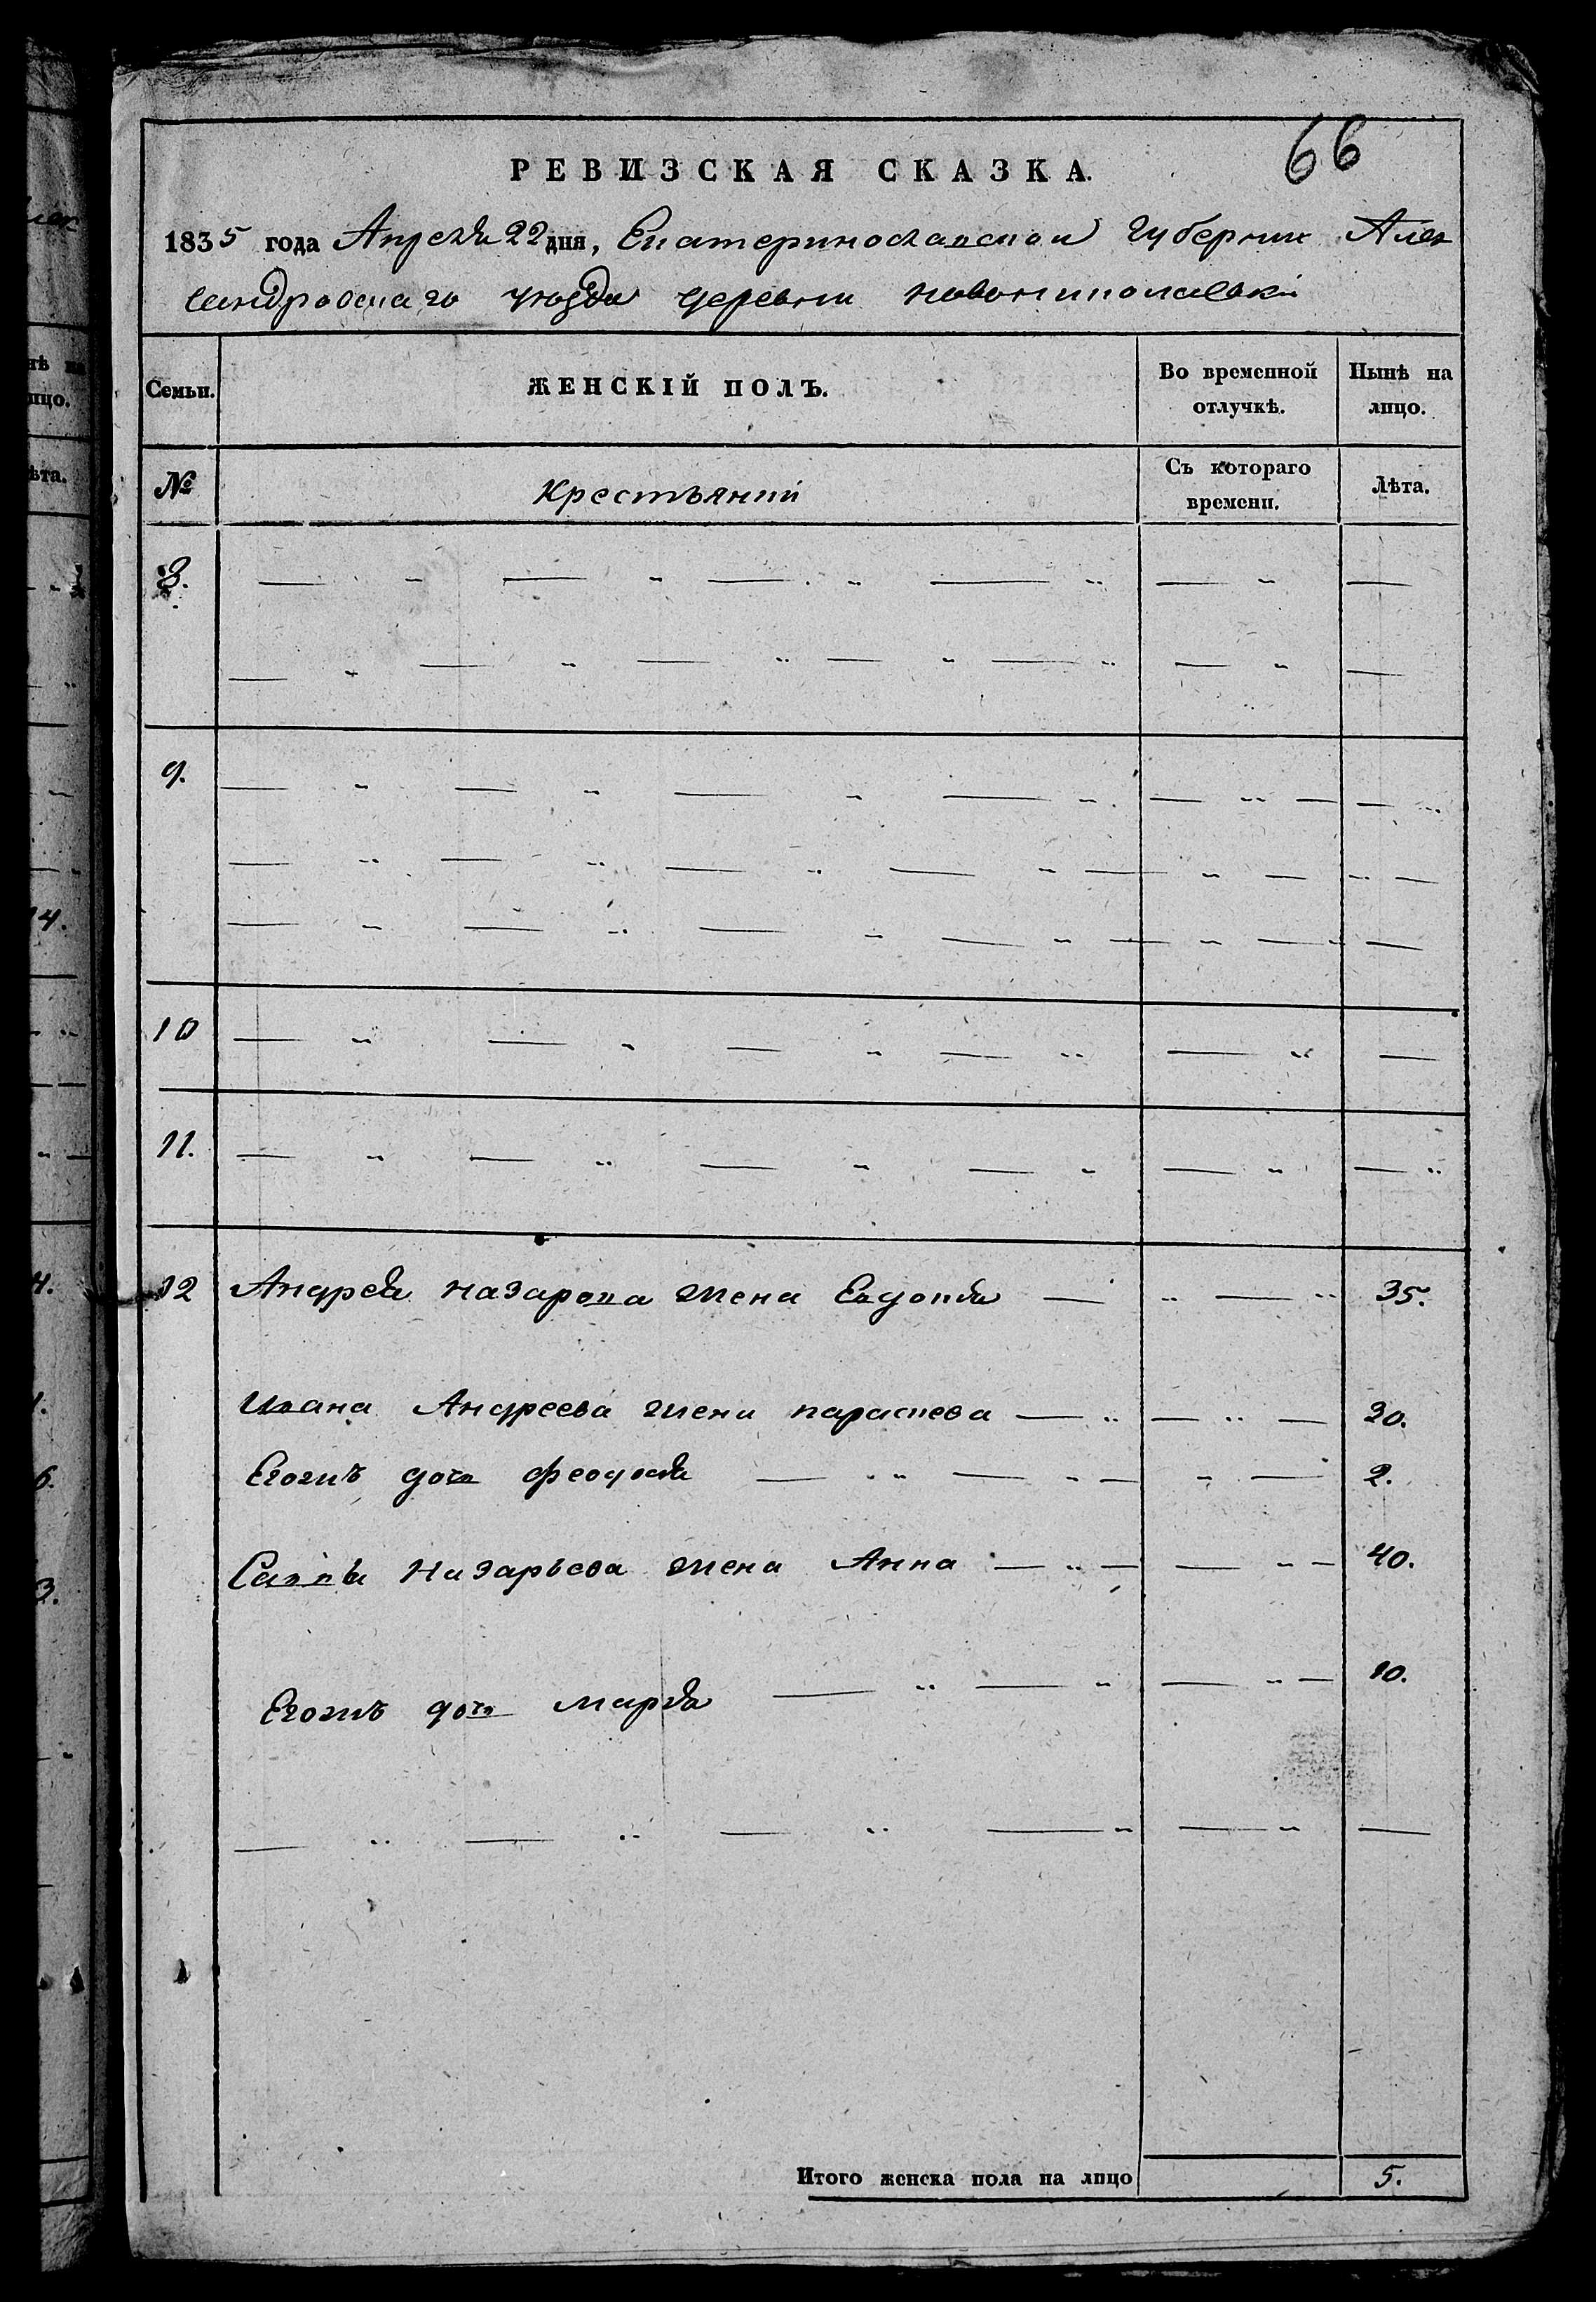 66
РЕВИЗСКАЯ СКАЗКА.
1835 года Апреля 22 дня, Екатеринославской Губернии Алек
сандровскаго уезда деревни
Семьи. ЖЕНСКІЙ ПОЛЪ. Во временной отлучкѣ. Нынѣ на лицо.
№ Крестьянии Съ котораго времени. Лѣта.
8.
9.
10
11.
12 Андрея назарова жена Евдокия 35.
Ивана Андреева жена параскева 20.
Егожъ дочь феодосия 2.
Саввы Назарьева жена Анна 40.
Егожъ дочь марфа 10.
Итого женска пола на лицо 5.